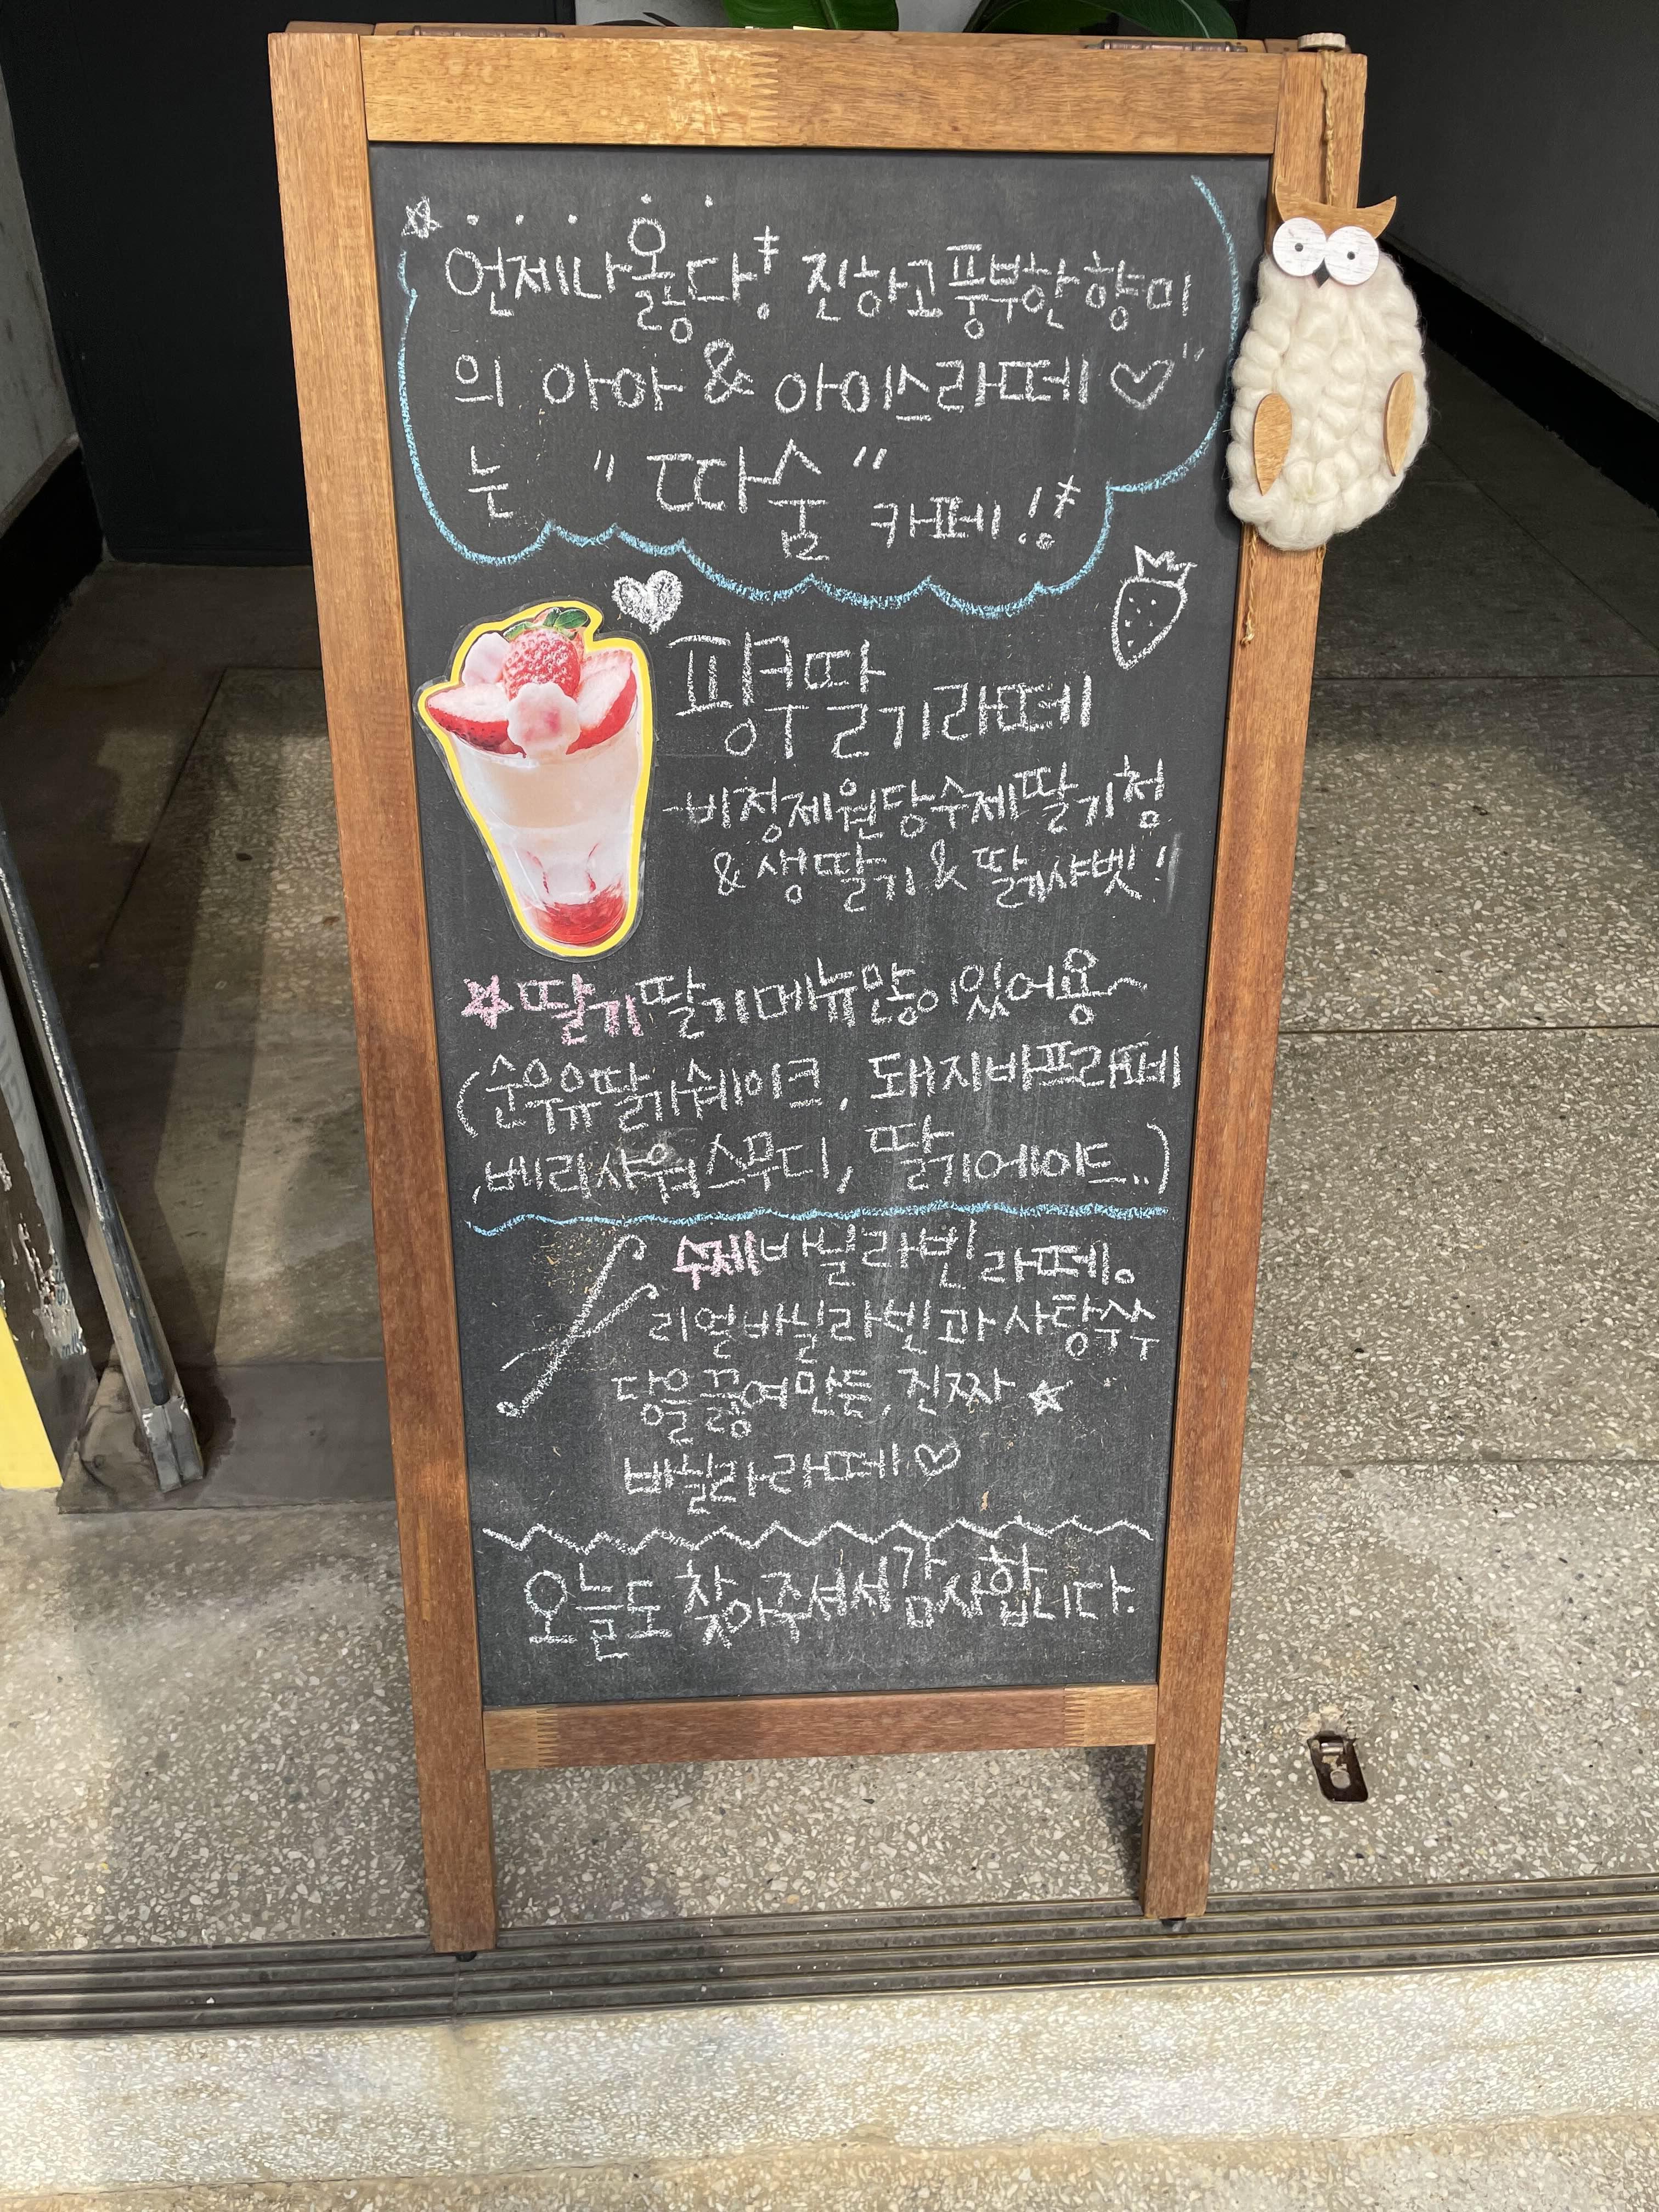 언제나 옳다! 진하고 풍부한 향미
의 아아 & 아이스라떼♡
는 "따숨" 카페!!
핑쿠딸기라떼
-비정제원당수제딸기청
& 생딸기 & 딸기샤벳!
☆딸기딸기메뉴많이있어용~
(순우유딸기쉐이크, 돼지바프라페
,베리샤워스무디, 딸기에이드..)
수제바닐라빈라떼。
리얼바닐라빈과 사탕수수
당을끓여만든, 진짜☆
바닐라라떼♡
오늘도 찾아주셔서감사합니다.